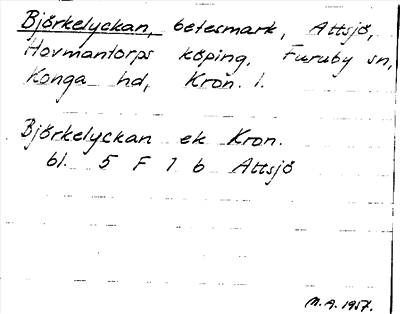 Björkelyckan, betesmark, Attsjö,
Hovmantorps köping, Furuby sn,
Konga hd, Kron. l.
Björkelyckan ek Kron.
bl. 5 F 1 b Attsjö
M.A. 1957.